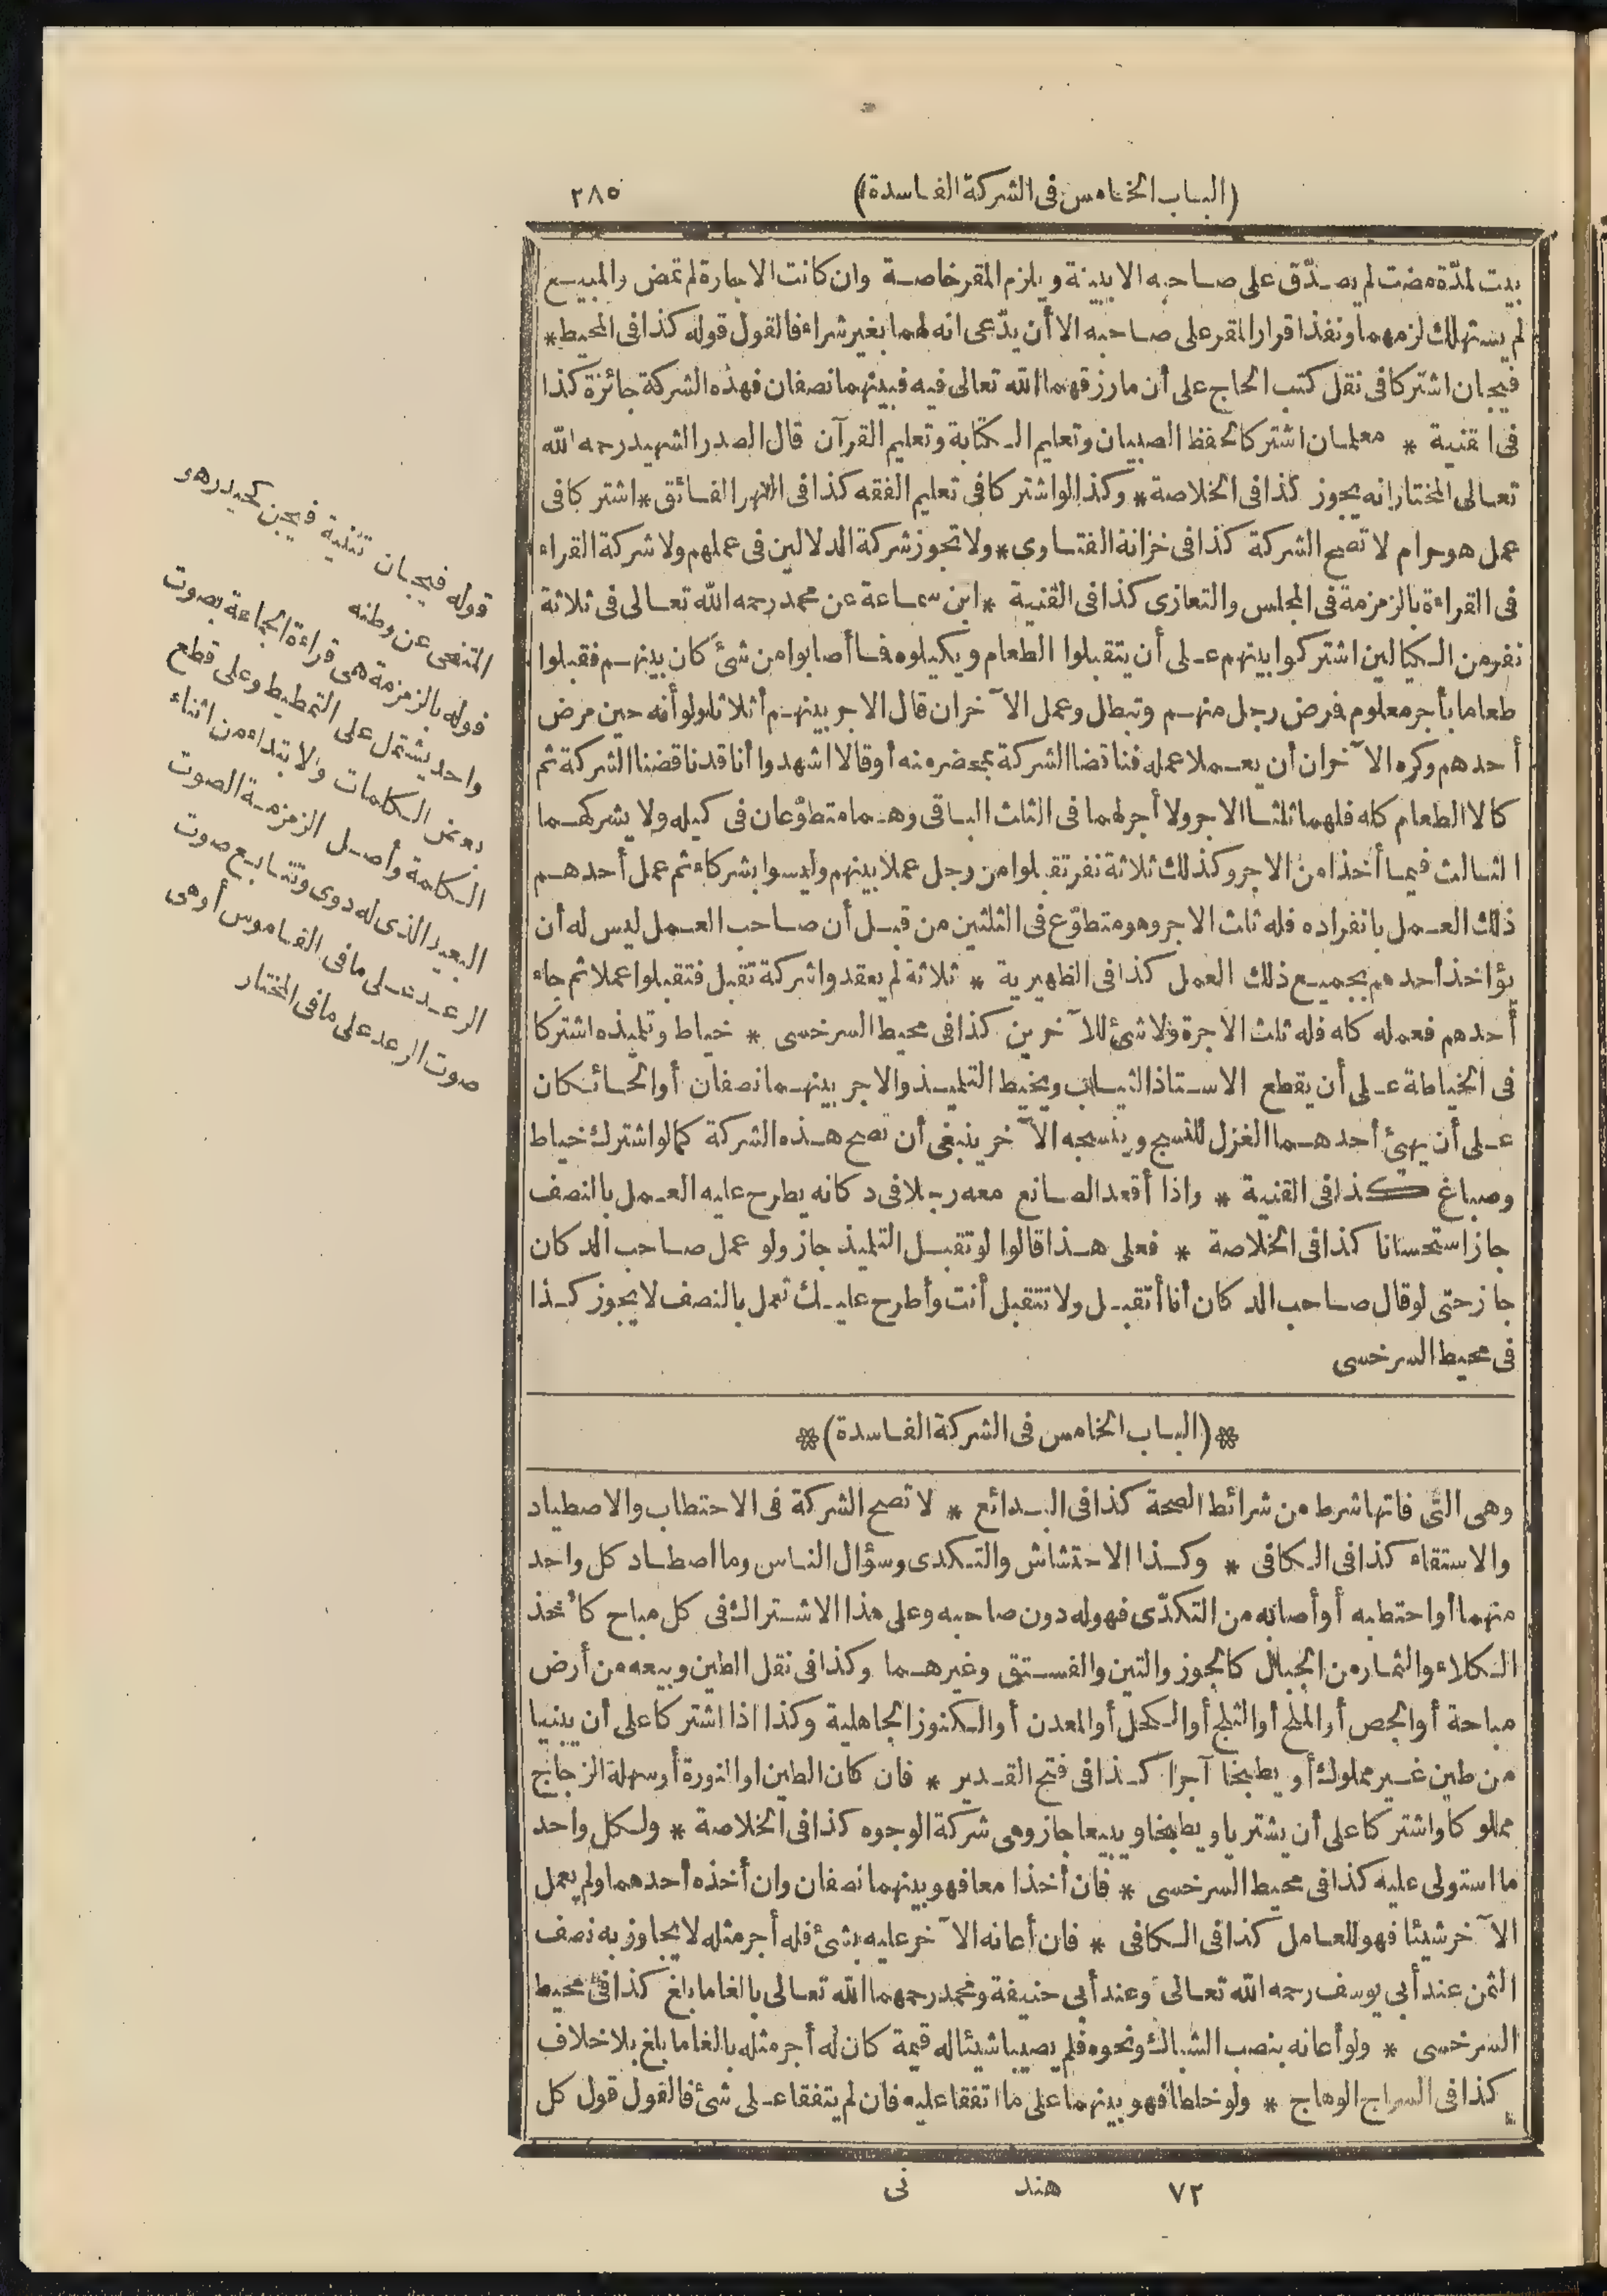 (الباب الخامس فى الشركة الفاسدة)
٢٨٥
بيت لمدّة مضت لم يصدّق على صاحبه الا ببينة ويلزم المقر خاصة وان كانت الاجارة لم تمض والمبيع
لم يستهلك لزمهما ونفذ اقرار المقر على صاحبه الا أن يدّعى انه لهما بغير شراء فالقول قوله كذا فى المحيط *
فيجان اشتركا فى نقل كتب الحاج على أن ما رزقهما الله تعالى فيه فبينهما نصفان فهذه الشركة جائزة كذا
فى القنية * معلمان اشتركا لحفظ الصبيان وتعليم الكتابة وتعليم القرآن قال الصدر الشهيد رحمه الله
تعالى المختار انه يجوز كذا فى الخلاصة * وكذا لو اشتركا فى تعليم الفقه كذا فى النهر الفائق * اشتركا فى
عمل هو حرام لا تصح الشركة كذا فى خزانة الفتاوى * ولا تجوز شركة الدلالين فى عملهم ولا شركة القراء
فى القراءة بالزمزمة فى المجلس والتعازى كذا فى القنية * ابن سماعة عن محمد رحمه الله تعالى فى ثلاثة
نفر من الكيالين اشتركوا بينهم على أن يتقبلوا الطعام ويكيلوه فما أصابوا من شئ كان بينهم فقبلوا
طعاما بأجر معلوم فرض رجل منهم وتبطل وعمل الآخران قال الاجر بينهم أثلاثا ولو أنه حين مرض
أحدهم وكره الآخران أن يعملا عمله فناقضا الشركة بمحضر منه أو قالا اشهدوا أنا قد ناقضنا الشركة ثم
كالا الطعام كله فلهما ثلثا الاجر ولا أجر لهما فى الثلث الباقى وهما متطوّعان فى كيله ولا يشركهما
الثالث فيما أخذا من الاجر وكذلك ثلاثة نفر تقبلوا من رجل عملا بينهم وليسوا بشركاء ثم عمل أحدهم
ذلك العمل بانفراده فله ثلث الاجر وهو متطوّع فى الثلثين من قبل أن صاحب العمل ليس له أن
يؤاخذ أحدهم بجميع ذلك العمل كذا فى الظهيرية * ثلاثة لم يعقدوا شركة تقبل فتقبلوا عملا ثم جاء
أحدهم فعمله كله فله ثلث الاجرة ولا شئ للآخرين كذا فى محيط السرخسى * خياط وتلميذه اشتركا
فى الخياطة على أن يقطع الاستاذ الثياب ويخيط التلميذ والاجر بينهما نصفان أو الحائكان
على أن يهيئ أحدهما الغزل للنسج وينسجه الآخر ينبغى أن تصح هذه الشركة كما لو اشترك خياط
وصباغ كذا فى القنية * واذا أقعد الصانع معه رجلا فى دكانه يطرح عليه العمل بالنصف
جاز استحسانا كذا فى الخلاصة * فعلى هذا قالوا لو تقبل التلميذ جاز ولو عمل صاحب الدكان
جاز حتى لو قال صاحب الدكان أنا أتقبل ولا تتقبل أنت وأطرح عليك تعمل بالنصف لا يجوز كذا
فى محيط السرخسى
قوله فيجان تثنية فيجن كحيدر هو
المتنحى عن وطنه
قوله بالزمزمة هى قراءة الجماعة بصوت
واحد يشتمل على التمطيط وعلى قطع
بعض الكلمات والابتداء من اثناء
الكلمة وأصل الزمزمة الصوت
البعيد الذى له دوى وتتابع صوت
الرعد على ما فى القاموس أو هى
صوت الرعد على ما فى المختار
❊(الباب الخامس فى الشركة الفاسدة)❊
وهى التى فاتها شرط من شرائط الصحة كذا فى البدائع * لا تصح الشركة فى الاحتطاب والاصطياد
والاستقاء كذا فى الكافى * وكذا الاحتشاش والتكدى وسؤال الناس وما اصطاد كل واحد
منهما أو احتطبه أو أصابه من التكدّى فهو له دون صاحبه وعلى هذا الاشتراك فى كل مباح كأخذ
الكلاء والثمار من الجبال كالجوز والتين والفستق وغيرهما وكذا فى نقل الطين وبيعه من أرض
مباحة أو الجص أو الملح أو الثلج أو الكحل أو المعدن أو الكنوز الجاهلية وكذا اذا اشتركا على أن يبنيا
من طين غير مملوك أو يطبخا آجرا كذا فى فتح القدير * فان كان الطين او النورة أو سهلة الزجاج
مملوكا واشتركا على أن يشتريا ويطبخا ويبيعا جاز وهى شركة الوجوه كذا فى الخلاصة * ولكل واحد
ما استولى عليه كذا فى محيط السرخسى * فان أخذا معا فهو بينهما نصفان وان أخذه أحدهما ولم يعمل
الآخر شيئا فهو للعامل كذا فى الكافى * فان أعانه الآخر عليه بشئ فله أجر مثله لا يجاوز به نصف
الثمن عند أبى يوسف رحمه الله تعالى وعند أبى حنيفة ومحمد رحمهما الله تعالى بالغا ما بلغ كذا فى محيط
السرخسى * ولو أعانه بنصب الشباك ونحوه فلم يصيبا شيئا له قيمة كان له أجر مثله بالغا ما بلغ بلا خلاف
كذا فى السراج الوهاج * ولو خلطا فهو بينهما على ما اتفقا عليه فان لم يتفقا على شئ فالقول قول كل
٧٢ هند نى